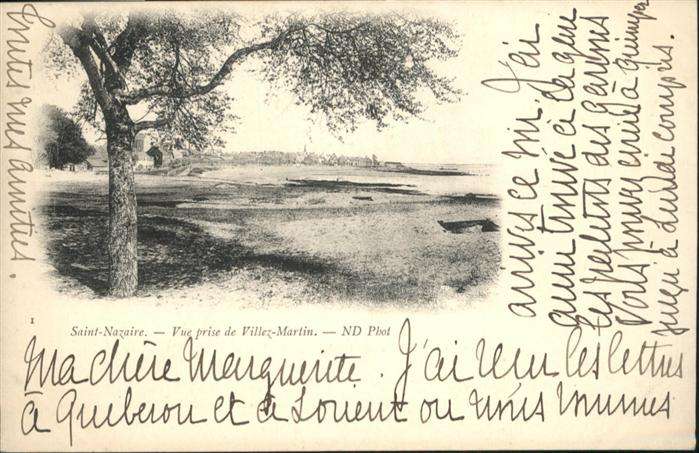 Ma chère Marguerite. J'ai reçu les lettres
à Quiberon et à Lorient où nous sommes
arrivés ce midi. J'ai
aussi trouvé ici
les des garçons
vous pouvez écrire à Quimper
jusqu'à lundi compris.
Toutes mes amitiés.
1
Saint-Nazaire. — Vue prise de Villez-Martin. — ND Phot